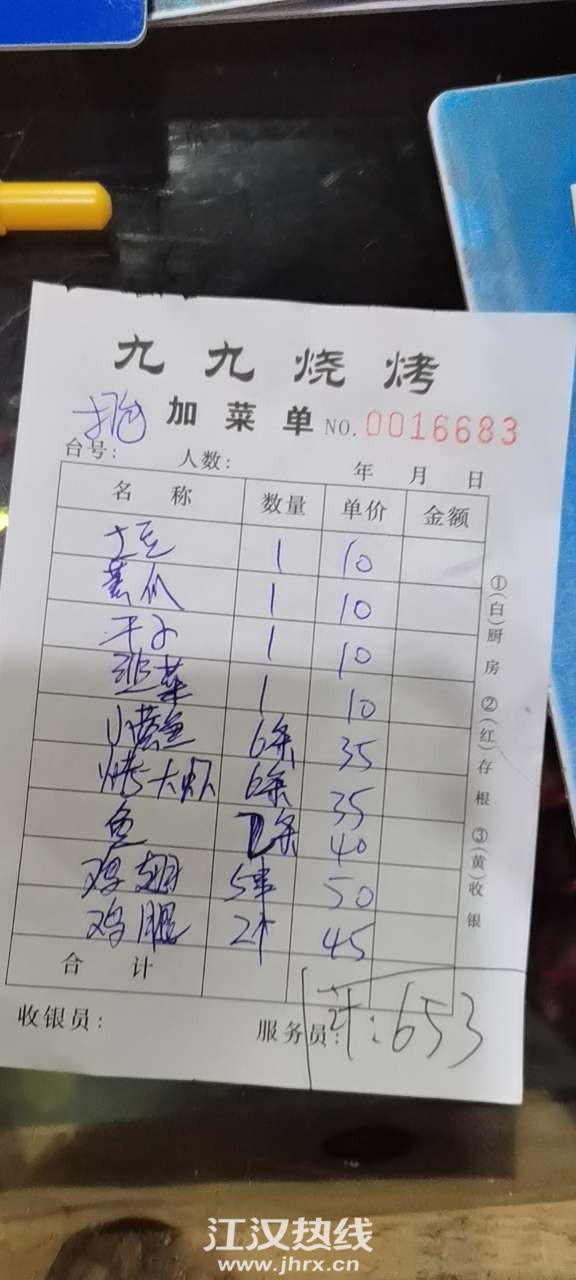 九九烧烤
加菜单 NO. 0016683
台号: 人数: 年 月 日
名称 数量 单价 金额
土豆 1 10
黄瓜 1 10
干子 1 10
韭菜 1 10
小黄鱼 6条 35
烤大虾 6条 35
鱼 条 40
鸡翅 5串 50
鸡腿 2个 45
合计
收银员: 服务员:
计:653
①(白)厨房 ②(红)存根 ③(黄)收银
江汉热线
www.jhrx.cn